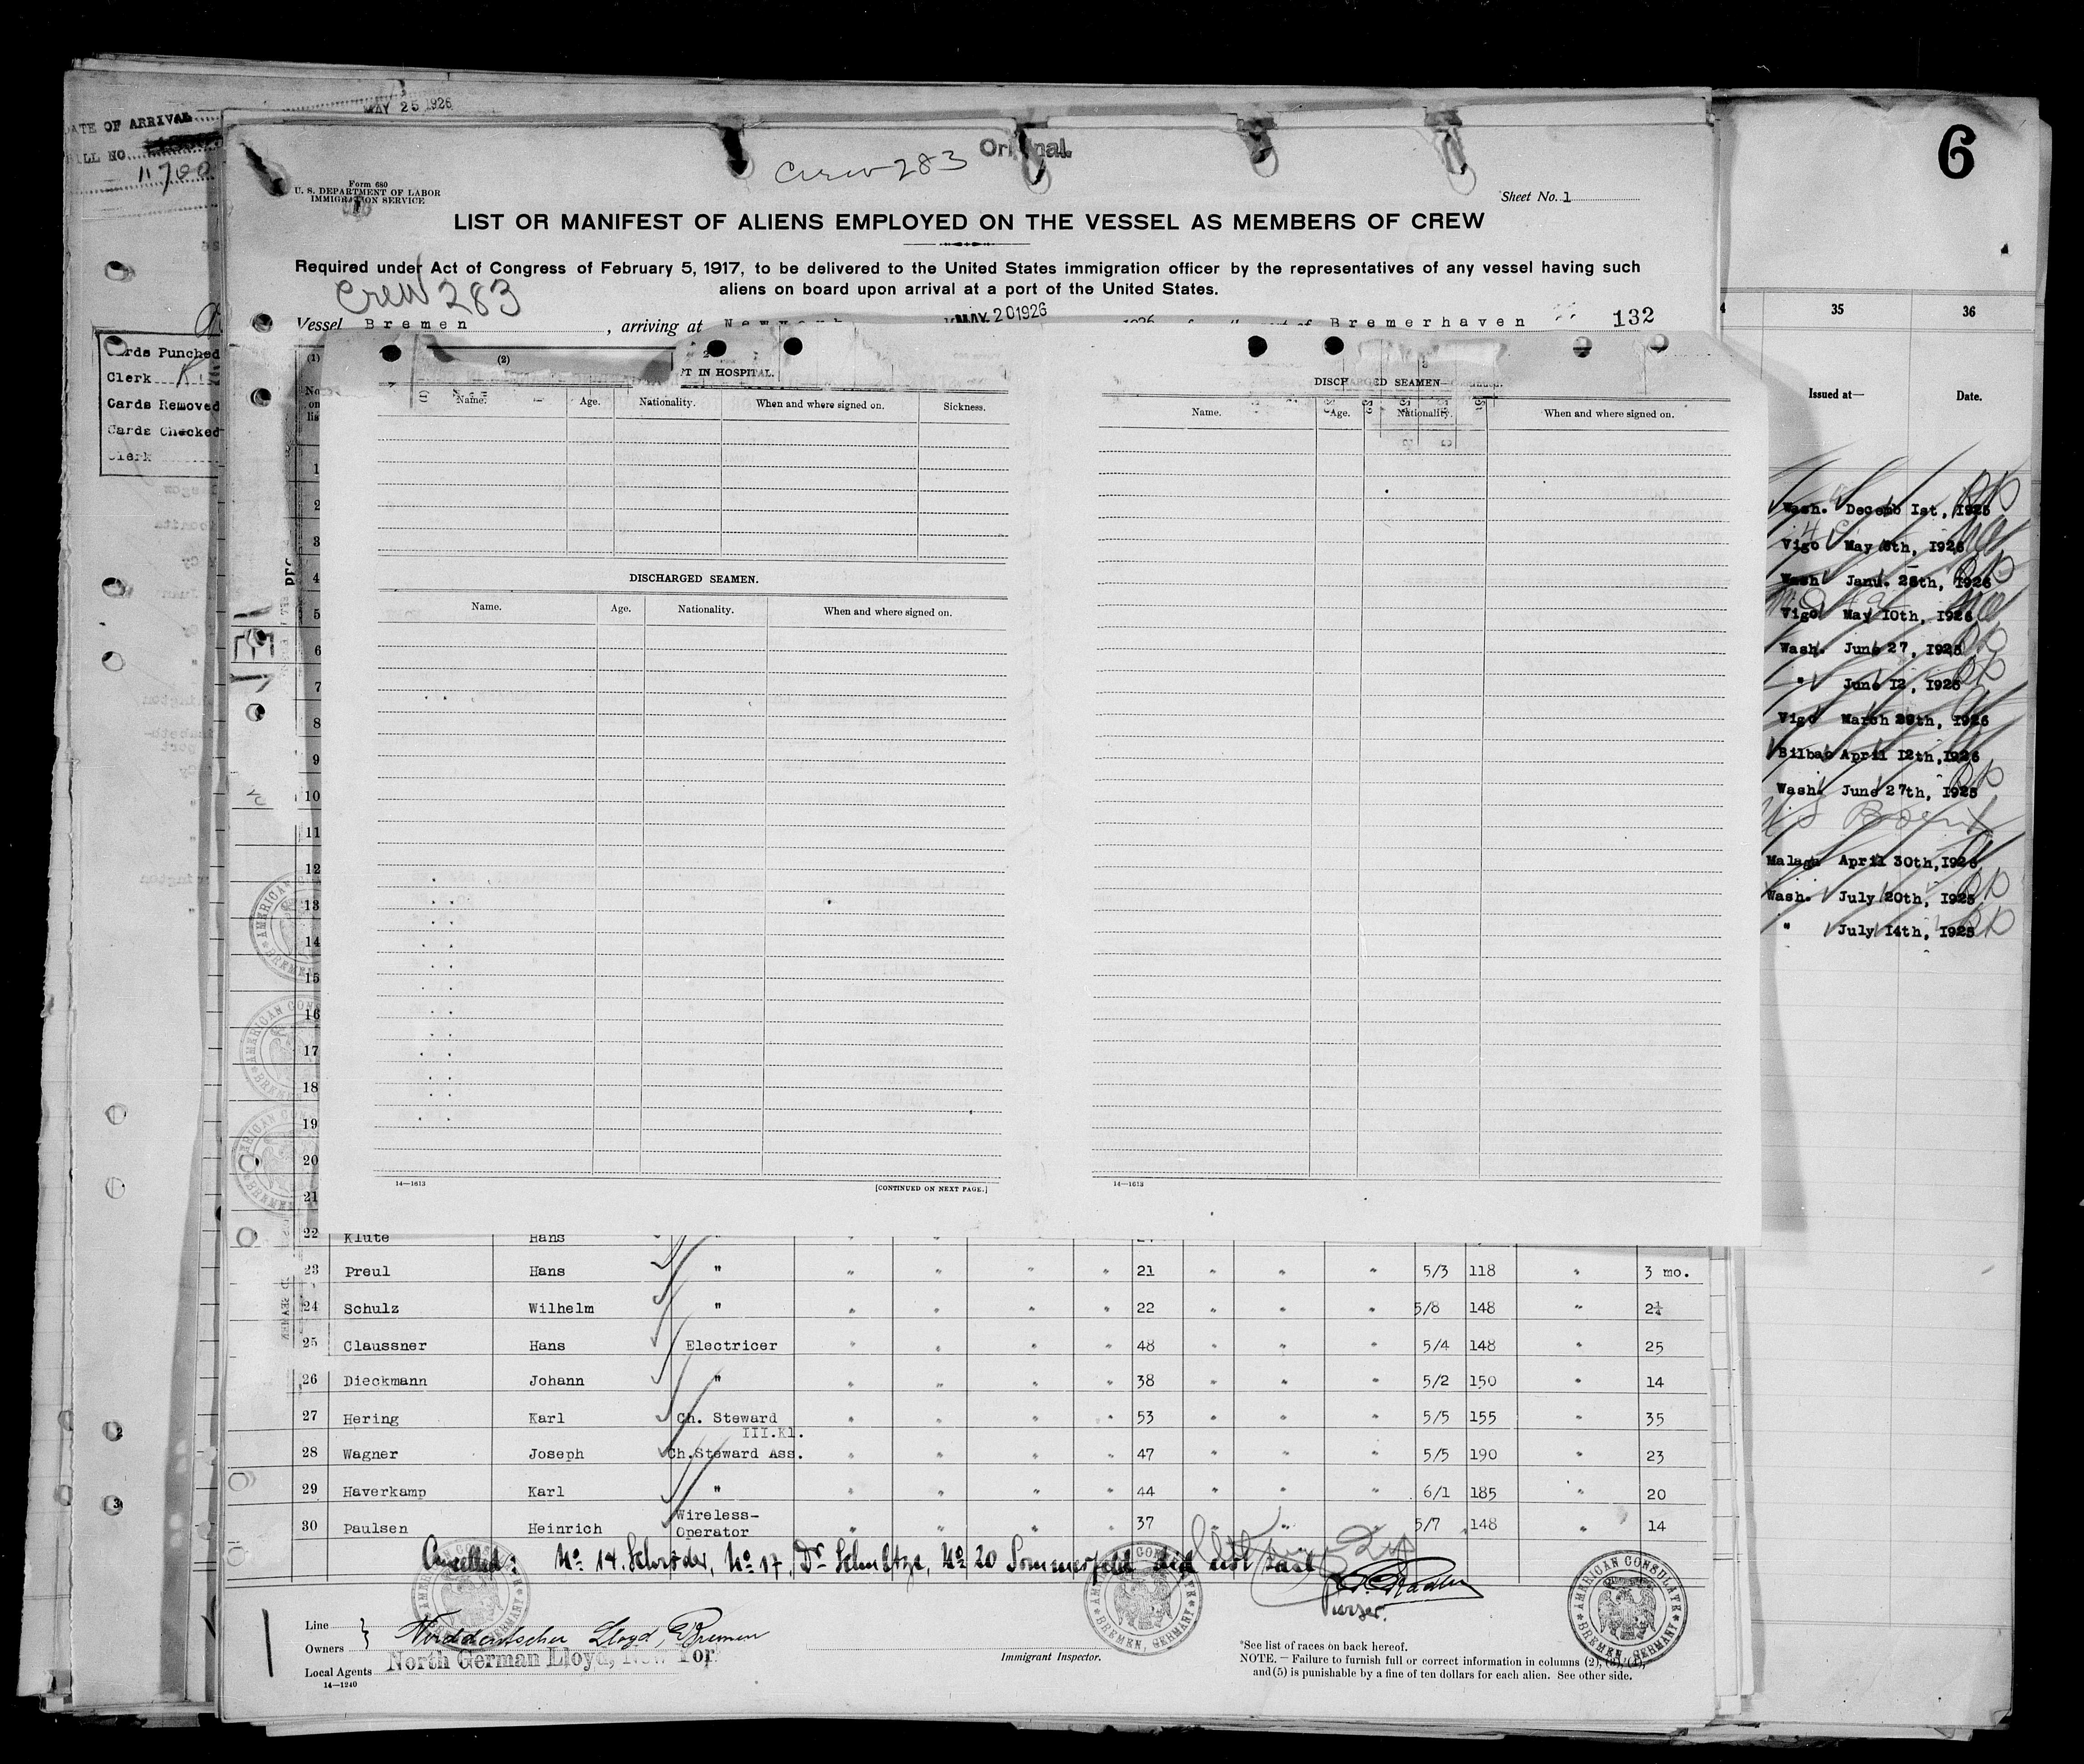 MAY 25 1926
DATE OF ARRIVAL
BILL NO.
11700
Cards Punched
Clerk
Cards Removed
Cards Checked
Clerk
Original
Crew 283
Form 680
U. S. DEPARTMENT OF LABOR
IMMIGRATION SERVICE
Sheet No. 1
LIST OR MANIFEST OF ALIENS EMPLOYED ON THE VESSEL AS MEMBERS OF CREW
Required under Act of Congress of February 5, 1917, to be delivered to the United States immigration officer by the representatives of any vessel having such
aliens on board upon arrival at a port of the United States.
Crew 283
Vessel Bremen , arriving at New York MAY 20 1926 1926 Bremerhaven 132
(1) (2)
T IN HOSPITAL.
Name. Age. Nationality. When and where signed on. Sickness.
DISCHARGED SEAMEN.
Name. Age. Nationality. When and where signed on.
14—1613 [CONTINUED ON NEXT PAGE.]
3
DISCHARGED SEAMEN—Continued.
Name. Age. Nationality. When and where signed on.
14—1613
1
2
3
4
5
6
7
8
9
10
11
12
13
14
15
16
17
18
19
20
21
22 Klute Hans "
23 Preul Hans " " " " " 21 " " " 5/3 118 " 3 mo.
24 Schulz Wilhelm " " " " " 22 " " " 5/8 148 " 2¼
25 Claussner Hans Electricer " " " " 48 " " " 5/4 148 " 25
26 Dieckmann Johann " " " " " 38 " " " 5/2 150 " 14
27 Hering Karl Ch. Steward " " " " 53 " " " 5/5 155 " 35
III.Kl.
28 Wagner Joseph Ch.Steward Ass. " " " " 47 " " " 5/5 190 " 23
29 Haverkamp Karl " " " " " 44 " " " 6/1 185 " 20
30 Paulsen Heinrich Wireless-
Operator " " " " 37 " " " 5/7 148 " 14
Cancelled: No 14. Schröder, No 17, Dr Schultze, No 20 Sommerfeld did not sail
Purser.
Line
Owners } Norddeutscher Lloyd, Bremen
Local Agents North German Lloyd, New York
14—1240
Immigrant Inspector.
*See list of races on back hereof.
NOTE. — Failure to furnish full or correct information in columns (2), (3), (4),
and (5) is punishable by a fine of ten dollars for each alien. See other side.
AMERICAN CONSULATE
BREMEN, GERMANY
6
35 36
Issued at— Date.
Wash. Decemb 1st, 1925
Vigo May 8th, 1926
Wash Janu. 28th, 1926
Vigo May 10th, 1926
Wash. June 27, 1925
" June 12, 1925
Vigo March 29th, 1926
Bilbao April 12th, 1926
Wash. June 27th, 1925
US Born
Malaga April 30th, 1926
Wash. July 20th, 1925
" July 14th, 1925